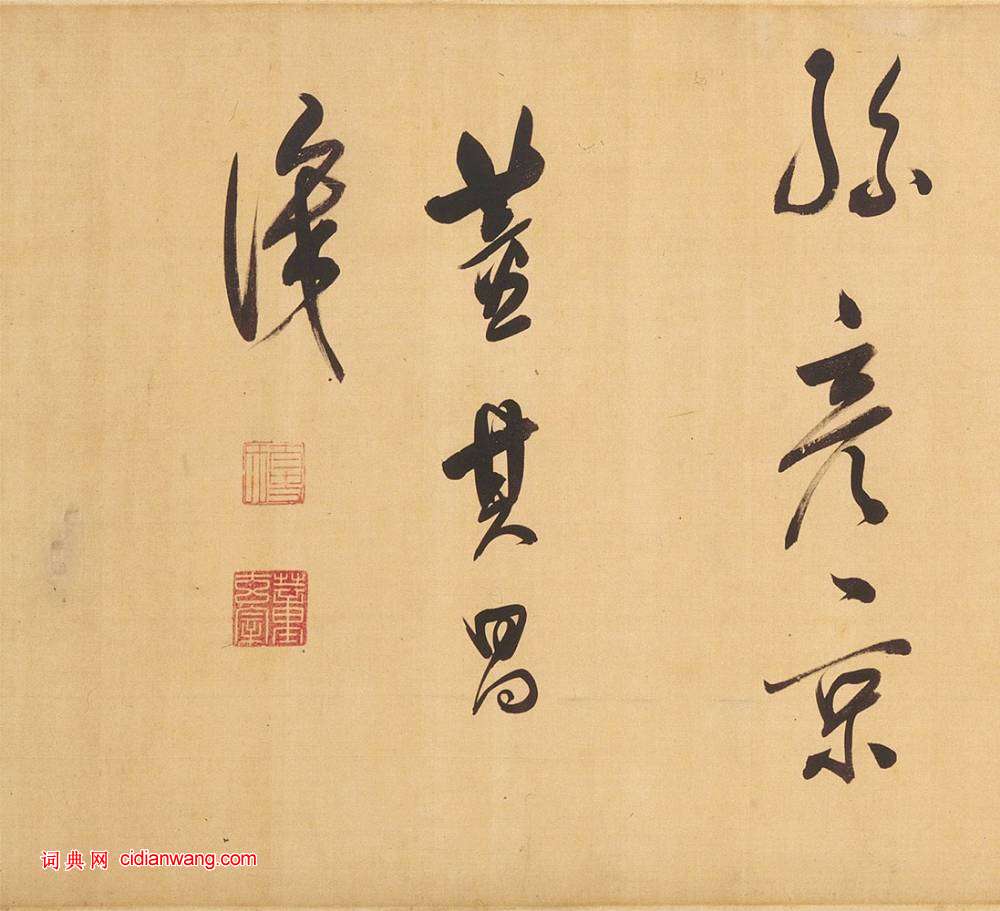 孫彥京
董其昌
識
董玄宰
词典网 cidianwang.com